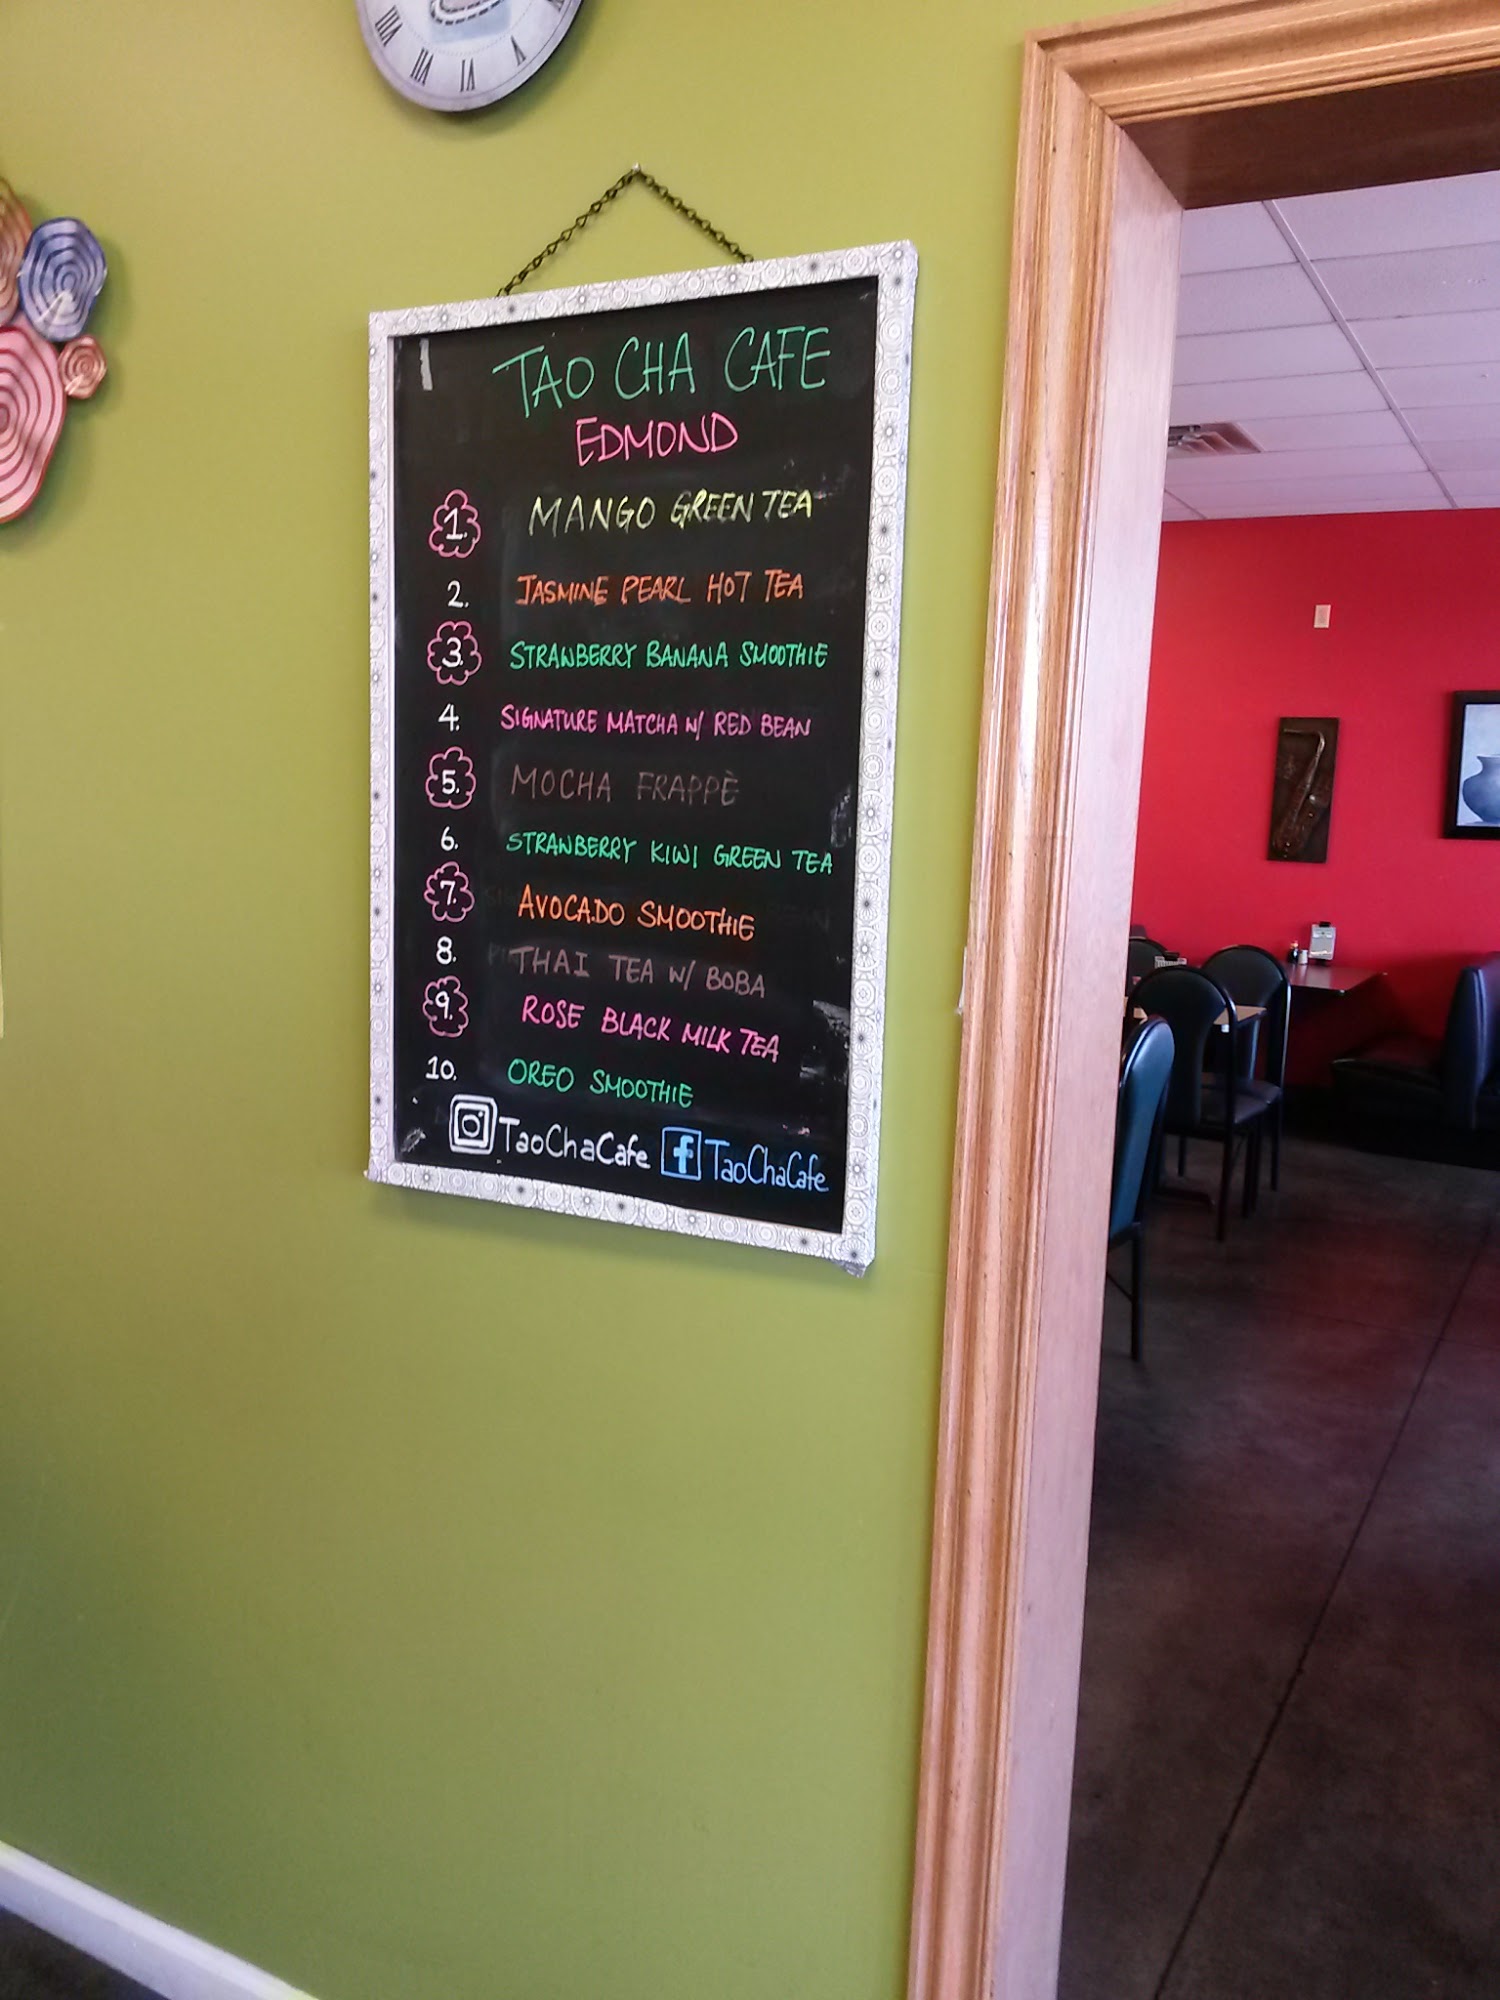 VIII VII VI V
TAO CHA CAFE
EDMOND
1. MANGO GREEN TEA
2. JASMINE PEARL HOT TEA
3. STRAWBERRY BANANA SMOOTHIE
4. SIGNATURE MATCHA W/ RED BEAN
5. MOCHA FRAPPÈ
6. STRAWBERRY KIWI GREEN TEA
7. AVOCADO SMOOTHIE
8. THAI TEA W/ BOBA
9. ROSE BLACK MILK TEA
10. OREO SMOOTHIE
TaoChaCafe f TaoChaCafe